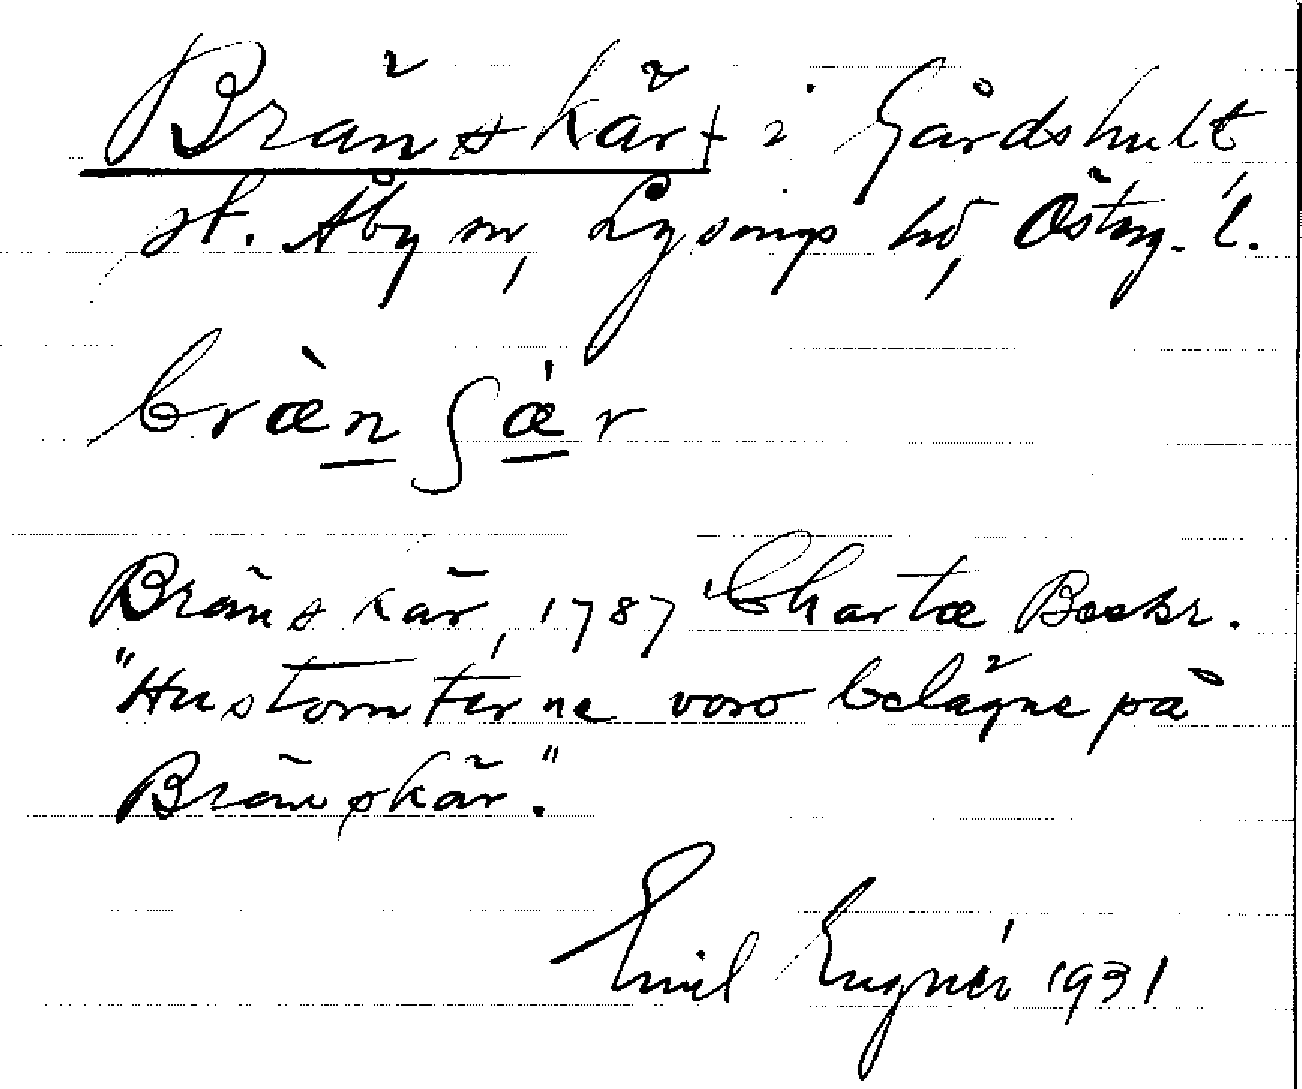 Bränskär † i Gårdshult
st. Åby sn, Lysings hd, Östrg. l.
bræ̀n̲ʃǽ̲r
Bränskär, 1787 Chartæ Beskr.
"Hustomterne voro belägne på
Bränskär."
Emil Eugnér 1931